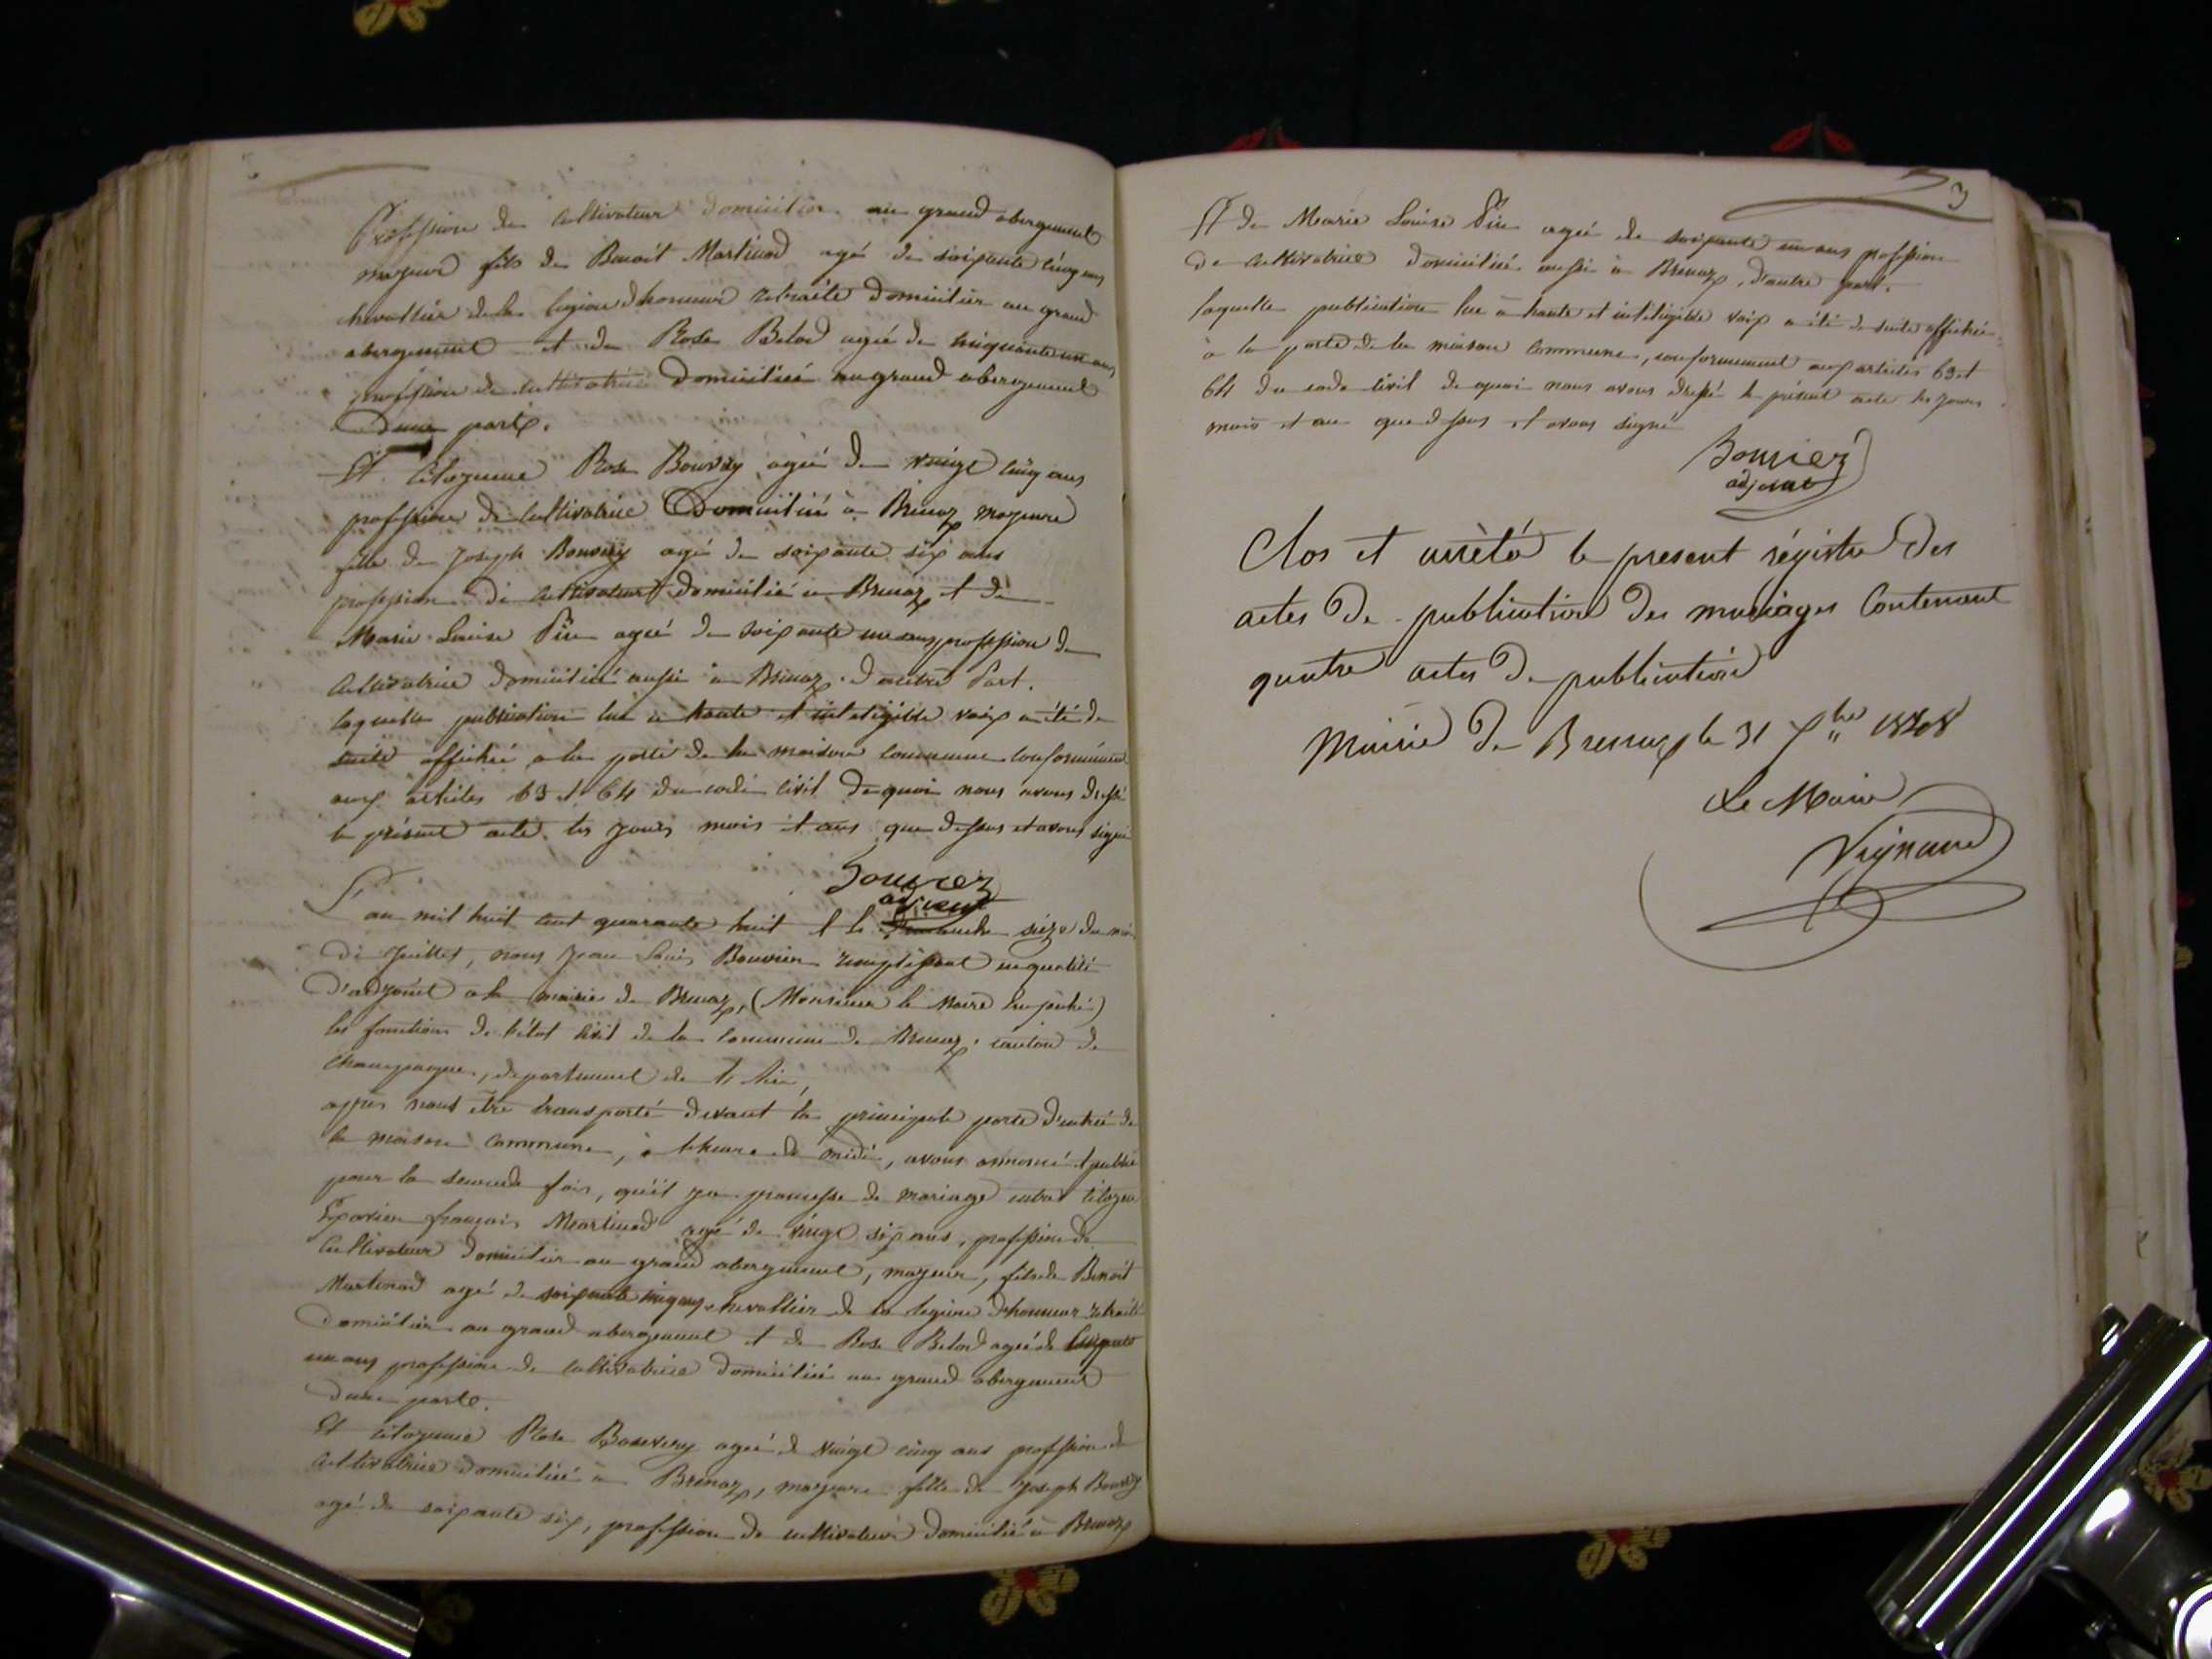 Profession de cultivateur domicilier au grand abergement
majeur fils de Benoit Martinod agé de soixante cinq ans
chevallier de la legion d'honneur retraité domicilier au grand
abergement et de Rose Belod agée de cinquante un ans
profession de cultivatrice domiciliée au grand abergement
d'une part.
Et citoyenne Rose Bouvery agée de vingt cinq ans
profession de cultivatrice Domiciliée à Brenaz majeure
fille de Joseph Bouvery agé de soixante six ans
profession de cultivateur domicilié a Brenaz et de
Marie Louise Pin agée de soixante un ans profession de
cultivatrice domiciliée aussi à Brenaz d'autre Part.
laquelle publication lue a haute et inteligible voix a été de
suite affichée a la porte de la maison commune conformément
aux articles 63 et 64 du code civil de quoi nous avons dressé
le présent acte les jours mois et ans que dessus et avons signé
Bouvier
adjoint
L'an mil huit cent quarante huit et le dimanche sieze du mois
de Juillet, nous Jean Louis Bouvier remplissant en qualité
d'adjoint a la mairie de Brenaz, (Monsieur le Maire empêché)
les fonctions de l'état civil de la commune de Brenaz, canton de
Champagne, département de l'Ain,
appres nous être transporté devant la principale porte d'entrée de
la maison commune, à l'heure de midi, avons annoncé et publié
pour la seconde fois, qu'il y a promesse de mariage entre citoyen
françois Martinod agé de vingt six ans, profession de
cultivateur domicilier au grand abergement, majeur, fils de Benoit
Martinod agé de soixante cinq ans chevallier de la legion d'honneur retraité
domicilier au grand abergement et de Rose Belod agée de cinquante
un ans profession de cultivatrice domiciliée au grand abergement
d'une part.
Et citoyenne Rose Bouvery agée de vingt cinq ans profession de
cultivatrice domiciliée à Brenaz, majeure fille de Joseph Bouvery
agé de soixante six, profession de cultivateur domicilié à Brenaz
3
Et de Marie Louise Pin agée de soixante un ans profession
de cultivatrice domiciliée aussi à Brenaz, d'autre part.
laquelle publication lue à haute et inteligible voix a été de suite affichée
à la porte de la maison commune, conformément aux articles 63 et
64 du code civil de quoi nous avons dressé le présent acte les jours
mois et an que dessus et avons signé
Bouvier
adjoint
Clos et arrêté le present régistre des
actes de publication des mariages Contenant
quatre actes de publication
Mairie de Brenaz le 31 Xbre 1848
Le Maire